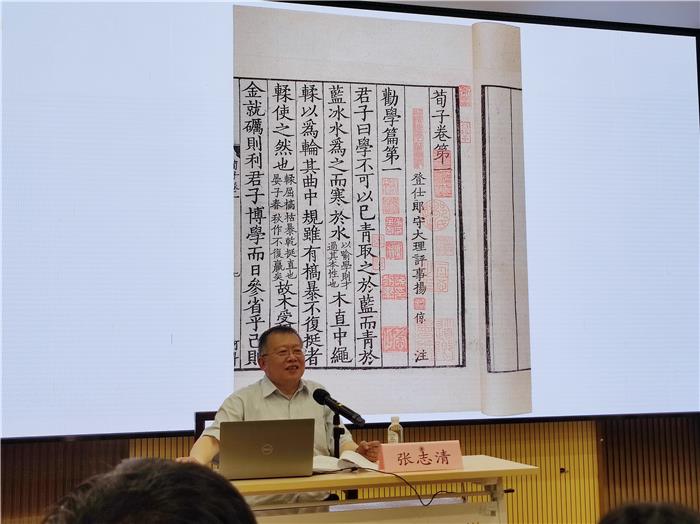 荀子卷第一
登仕郎守大理評事揚倞注
勸學篇第一
君子曰學不可以已青取之於藍而青於
藍冰水爲之而寒於水以喻學則才過其本性也木直中繩
輮以爲輪其曲中規雖有槁暴不復挺者
輮使之然也輮屈槁枯暴乾挺直也晏子春秋作不復贏矣故木受
金就礪則利君子博學而日參省乎己則
张志清